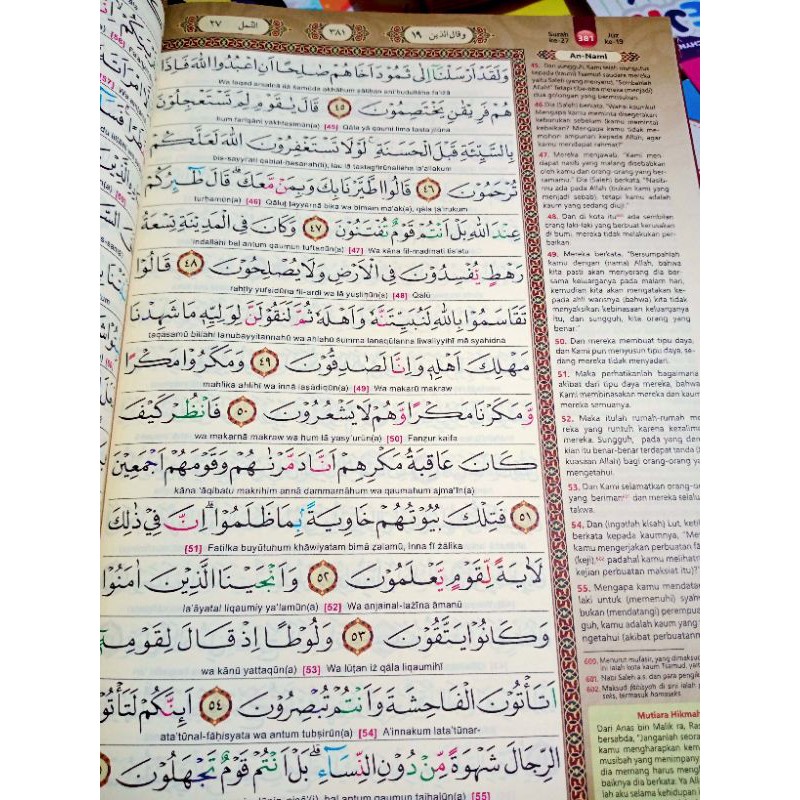 النمل ٢٧
٣٨١
وقال الذين ١٩
وَلَقَدْ اَرْسَلْنَآ اِلٰى ثَمُوْدَ اَخَاهُمْ صٰلِحًا اَنِ اعْبُدُوا اللّٰهَ فَاِذَا
Wa laqad arsalnā ilā ṡamūda akhāhum ṣāliḥan ani‘budullāha fa'iżā
هُمْ فَرِيْقٰنِ يَخْتَصِمُوْنَ ٤٥ قَالَ يٰقَوْمِ لِمَ تَسْتَعْجِلُوْنَ
hum farīqāni yakhtaṣimūn(a) [45] Qāla yā qaumi lima tasta‘jilūna
بِالسَّيِّئَةِ قَبْلَ الْحَسَنَةِۚ لَوْلَا تَسْتَغْفِرُوْنَ اللّٰهَ لَعَلَّكُمْ
bis-sayyi'ati qablal-ḥasanah(ti), lau lā tastagfirūnallāha la‘allakum
تُرْحَمُوْنَ ٤٦ قَالُوا اطَّيَّرْنَا بِكَ وَبِمَنْ مَّعَكَۗ قَالَ طٰۤىِٕرُكُمْ
turḥamūn(a) [46] Qāluṭ ṭayyarnā bika wa bimam ma‘ak(a), qāla ṭā'irukum
عِنْدَ اللّٰهِ بَلْ اَنْتُمْ قَوْمٌ تُفْتَنُوْنَ ٤٧ وَكَانَ فِى الْمَدِيْنَةِ تِسْعَةُ
‘indallāhi bal antum qaumun tuftanūn(a) [47] Wa kāna fil-madīnati tis‘atu
رَهْطٍ يُّفْسِدُوْنَ فِى الْاَرْضِ وَلَا يُصْلِحُوْنَ ٤٨ قَالُوْا
rahṭiy yufsidūna fil-arḍi wa lā yuṣliḥūn(a) [48] Qālū
تَقَاسَمُوْا بِاللّٰهِ لَنُبَيِّتَنَّهٗ وَاَهْلَهٗ ثُمَّ لَنَقُوْلَنَّ لِوَلِيِّهٖ مَا شَهِدْنَا
taqāsamū billāhi lanubayyitannahū wa ahlahū ṡumma lanaqūlanna liwaliyyihī mā syahidnā
مَهْلِكَ اَهْلِهٖ وَاِنَّا لَصٰدِقُوْنَ ٤٩ وَمَكَرُوْا مَكْرًا
mahlika ahlihī wa innā laṣādiqūn(a) [49] Wa makarū makraw
وَّمَكَرْنَا مَكْرًا وَّهُمْ لَا يَشْعُرُوْنَ ٥٠ فَانْظُرْ كَيْفَ
wa makarnā makraw wa hum lā yasy‘urūn(a) [50] Fanẓur kaifa
كَانَ عَاقِبَةُ مَكْرِهِمْ اَنَّا دَمَّرْنٰهُمْ وَقَوْمَهُمْ اَجْمَعِيْنَ
kāna ‘āqibatu makrihim annā dammarnāhum wa qaumahum ajma‘īn(a)
٥١ فَتِلْكَ بُيُوْتُهُمْ خَاوِيَةً ۢبِمَا ظَلَمُوْاۗ اِنَّ فِيْ ذٰلِكَ
[51] Fatilka buyūtuhum khāwiyatam bimā ẓalamū, inna fī żālika
لَاٰيَةً لِّقَوْمٍ يَّعْلَمُوْنَ ٥٢ وَاَنْجَيْنَا الَّذِيْنَ اٰمَنُوْا
la'āyatal liqaumiy ya‘lamūn(a) [52] Wa anjainal-lażīna āmanū
وَكَانُوْا يَتَّقُوْنَ ٥٣ وَلُوْطًا اِذْ قَالَ لِقَوْمِهٖٓ
wa kānū yattaqūn(a) [53] Wa lūṭan iż qāla liqaumihī
اَتَأْتُوْنَ الْفَاحِشَةَ وَاَنْتُمْ تُبْصِرُوْنَ ٥٤ اَىِٕنَّكُمْ لَتَأْتُوْنَ
ata'tūnal-fāḥisyata wa antum tubṣirūn(a) [54] A'innakum lata'tūnar-
الرِّجَالَ شَهْوَةً مِّنْ دُوْنِ النِّسَاۤءِۗ بَلْ اَنْتُمْ قَوْمٌ تَجْهَلُوْنَ
bal antum qaumun tajhalūn(a) [55]
Surah ke-27
381
Juz ke-19
An-Naml
45. Dan sungguh, Kami telah mengutus
kepada (kaum) Tsamud saudara mereka
yaitu Saleh (yang menyeru), "Sembahlah
Allah!" Tetapi tiba-tiba mereka (menjadi)
dua golongan yang bermusuhan.
46. Dia (Saleh) berkata, "Wahai kaumku!
Mengapa kamu meminta disegerakan
keburukan sebelum (kamu meminta)
kebaikan? Mengapa kamu tidak me-
mohon ampunan kepada Allah, agar
kamu mendapat rahmat?"
47. Mereka menjawab, "Kami men-
dapat nasib yang malang disebabkan
oleh kamu dan orang-orang yang ber-
samamu." Dia (Saleh) berkata, "Nasib-
mu ada pada Allah (bukan kami yang
menjadi sebab), tetapi kamu adalah
kaum yang sedang diuji."
48. Dan di kota itu ada sembilan
orang laki-laki yang berbuat kerusakan
di bumi, mereka tidak melakukan per-
baikan.
49. Mereka berkata, "Bersumpahlah
kamu dengan (nama) Allah, bahwa
kita pasti akan menyerang dia ber-
sama keluarganya pada malam hari,
kemudian kita akan mengatakan ke-
pada ahli warisnya (bahwa) kita tidak
menyaksikan kebinasaan keluarganya
itu, dan sungguh, kita orang yang
benar."
50. Dan mereka membuat tipu daya,
dan Kami pun menyusun tipu daya, se-
dang mereka tidak menyadari.
51. Maka perhatikanlah bagaimana
akibat dari tipu daya mereka, bahwa
Kami membinasakan mereka dan kaum
mereka semuanya.
52. Maka itulah rumah-rumah me-
reka yang runtuh karena kezalima
mereka. Sungguh, pada yang de
kian itu benar-benar terdapat tanda (
kuasaan Allah) bagi orang-orang ya
mengetahui.
53. Dan Kami selamatkan orang-o
yang beriman dan mereka selalu
takwa.
54. Dan (ingatlah kisah) Lut, keti
berkata kepada kaumnya, "Me
kamu mengerjakan perbuatan fa
(keji), padahal kamu melihatn
kejian perbuatan maksiat itu)?"
55. Mengapa kamu mendatan
laki untuk (memenuhi) syahw
bukan (mendatangi) perempua
guh, kamu adalah kaum yang
ngetahui (akibat perbuatanm
600. Menurut mufasir, yang dimaksu
ini ialah kota kaum Tsamud
601. Nabi Saleh a.s. dan para pengik
602. Maksud fāḥisyah di sini ialah
seks, termasuk homoseks
Mutiara Hikmah
Dari Anas bin Malik ra, Ras
bersabda, "Janganlah seora
kamu mengharapkan kem
musibah yang menimpany
dia memang harus mengh
baiknya dia berkata: Ya Al
lah aku selama kehidupan